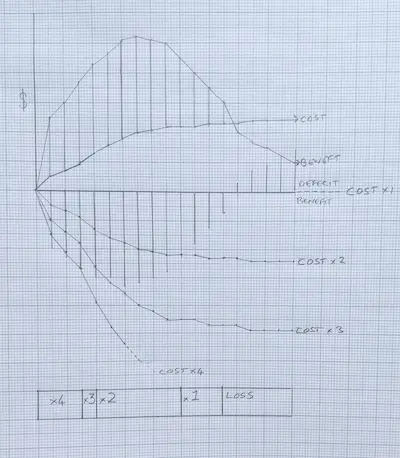 $
COST
BENEFIT
DEFICIT
BENEFIT
COST x1
COST x2
COST x3
COST x4
x4
x3
x2
x1
LOSS